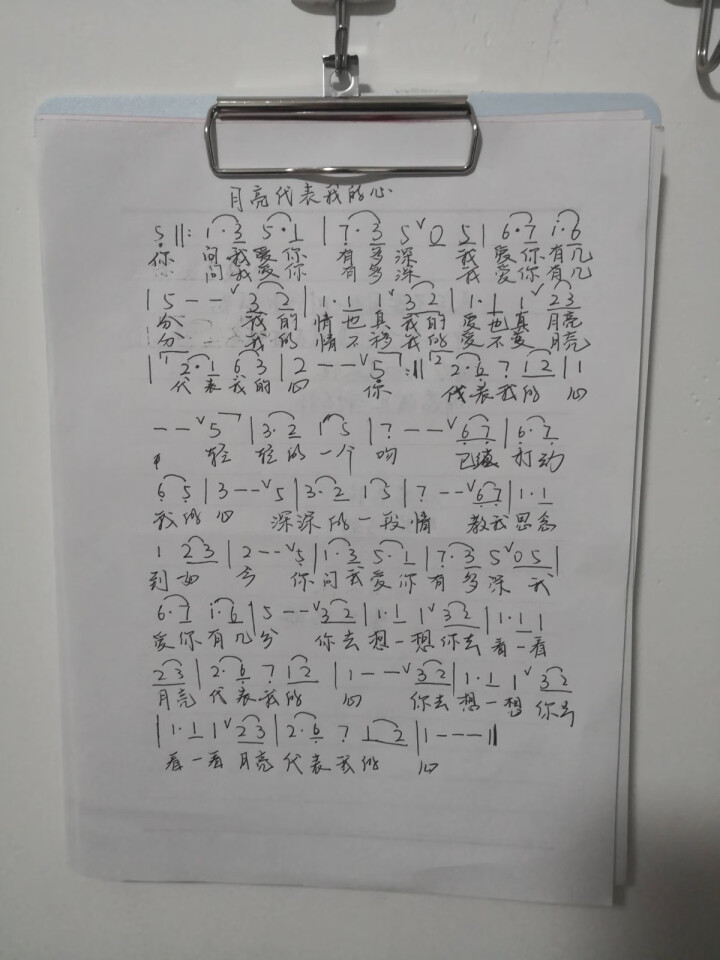 月亮代表我的心
5 ‖: 1·3 5·1 | 7·3 5 ∨ 0 5 | 6·7 i·6
你 问我爱你 有多深 我 爱你有几
您 问我爱你 有多深 我 爱你有几
| 5 - - ∨ 3 2 | 1·1 1 ∨ 3 2 | 1·1 1 ∨ 2 3
分 我的 情也真 我的 爱也真 月亮
分 我的 情不移 我的 爱不变 月亮
| 1 2·1 6 3 | 2 - - ∨ 5 :‖ 2 2·6 7 1 2 | 1
代表我的 心 你 代表我的 心
- - ∨ 5 | 3·2 1 5 | 7 - - ∨ 6 7 | 6·7
轻 轻的一个 吻 已经 打动
6 5 | 3 - - ∨ 5 | 3·2 1 5 | 7 - - ∨ 6 7 | 1·1
我的 心 深深的一段情 教我思念
1 2 3 | 2 - - ∨ 5 | 1·3 5·1 | 7·3 5 ∨ 0 5 |
到如 今 你问我爱你有多深 我
6·7 i·6 | 5 - - ∨ 3 2 | 1·1 1 ∨ 3 2 | 1·1 1
爱你有几分 你去想一想你去 看一看
2 3 | 2·6 7 1 2 | 1 - - ∨ 3 2 | 1·1 1 ∨ 3 2
月亮 代表我的 心 你去想一想 你去
| 1·1 1 ∨ 2 3 | 2·6 7 1 2 | 1 - - - ‖
看一看 月亮 代表我的 心